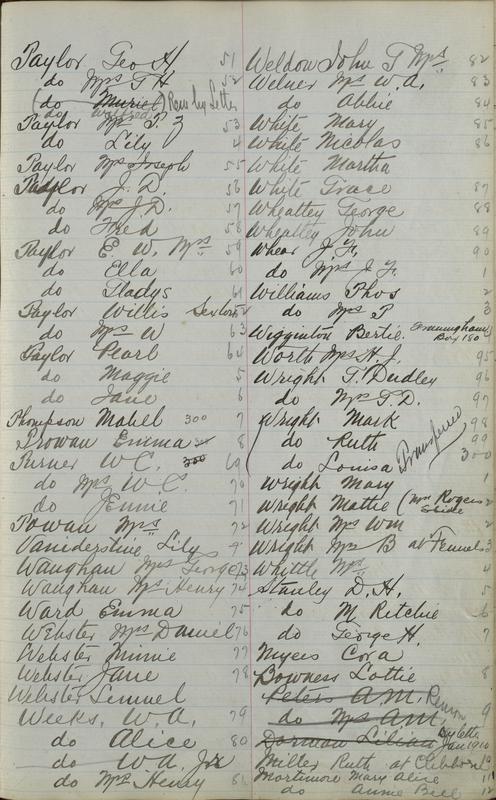 Taylor Geo H 51
do Mrs G H 52
(do Muriel) Rem by Letter
do Wilfred
Taylor Mrs T. J 53
do Lily 4
Taylor Mrs Joseph 55
Taylor J. D. 56
do Mrs J. D. 57
do Fred 58
Taylor E. W. Mrs 59
do Ella 60
do Gladys 61
Taylor Willis Sexton 62
do Mrs W 63
Taylor Pearl 64
do Maggie 5
do Jane 6
Thompson Mabel 300 7
Trowan Emma 8
Turner W C. 300 69
do Mrs W C. 70
do Jennie 71
Towan Mrs 72
Vaniderstine Lily 9
Waughan Mrs George 73
Waughan Mrs Henry 74
Ward Emma 75
Webster Mrs Daniel 76
Webster Minnie 77
Webster Jane 78
Webster Lemuel
Weeks, W. A, 79
do Alice 80
do W A. Jr
do Mrs Henry 81
Weldon John T Mrs 82
Welner Mrs W. A. 83
do Abbie 84
White Mary 85
White Nicolas 86
White Martha
White Grace 87
Wheatley George 88
Wheatley John 89
Whear J. F. 90
do Mrs J F. 1
Williams Thos 2
do Mrs T 3
Wigginton Bertie. Framingham Box 180
Worth Mrs H. J. 95
Wright T. Dudley 96
do Mrs T. D. 97
Wright Mark 98
do Ruth 99
do Louisa 300
Transferred
Wright Mary 1
Wright Mattie (Mrs Rogers 2
Wright Mrs Wm 2
Wright Mrs B at Fennels 3
Whittle Mrs 4
Stanley D. H. 5
do M Ritchie 6
do George H. 7
Myers Cora
Bowness Lottie 8
Peters A M. Remov
do Mrs A M. 9
Dorman Lilian by lett. Jan 1910
Miller Ruth at
Mortimore Mary Alice 11
do Annie Bell 12